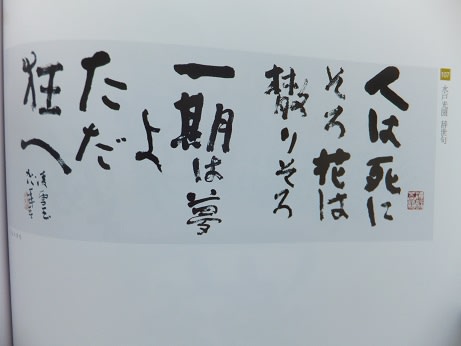 辞世句
人は死に
そろ花は
散りそろ
一期は夢
よ
ただ
狂へ